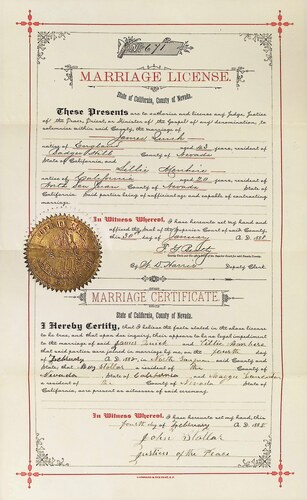 No 671
MARRIAGE LICENSE.
State of California, County of Nevada.
These Presents are to authorize and license any Judge, Justice
of the Peace, Priest, or Minister of the Gospel of any denomination, to
solemnize within said County, the marriage of
James
native of England aged 43 years, resident of
Badger Hill County of Nevada
State of California, and
Lillie
native of California aged 20 years, resident of
North San Juan County of Nevada State of
California. Said parties being of sufficient age and capable of contracting
marriage.
In Witness Whereof, I have hereunto set my hand and
affixed the Seal of the Superior Court of said County
this 30th day of January A. D. 188
County Clerk and ex-officio Clerk of the Superior Court for said Nevada County.
By W. D. Harris Deputy Clerk.
MARRIAGE CERTIFICATE.
State of California, County of Nevada.
I Hereby Certify, that I believe the facts stated in the above license
to be true, and that upon due inquiry, there appears to be no legal impediment
to the marriage of said James and Lillie
that said parties were joined in marriage by me, on the fourth day
of February A. D. 188 in North San Juan said County and
State; that Stollar a resident of the County of
Nevada State of California and Maggie
a resident of the County of Nevada State of
California, were present as witnesses of said ceremony.
In Witness Whereof, I have hereunto set my hand, this
fourth day of February A. D. 188
John Stollar
Justice of the Peace